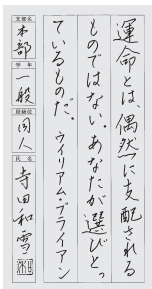 運命とは、偶然に支配される
ものではない。あなたが選びとっ
ているものだ。 ウィリアム・ブライアン
支部名
本部
学年
一般
段級位
同人
氏名
寺田和雪